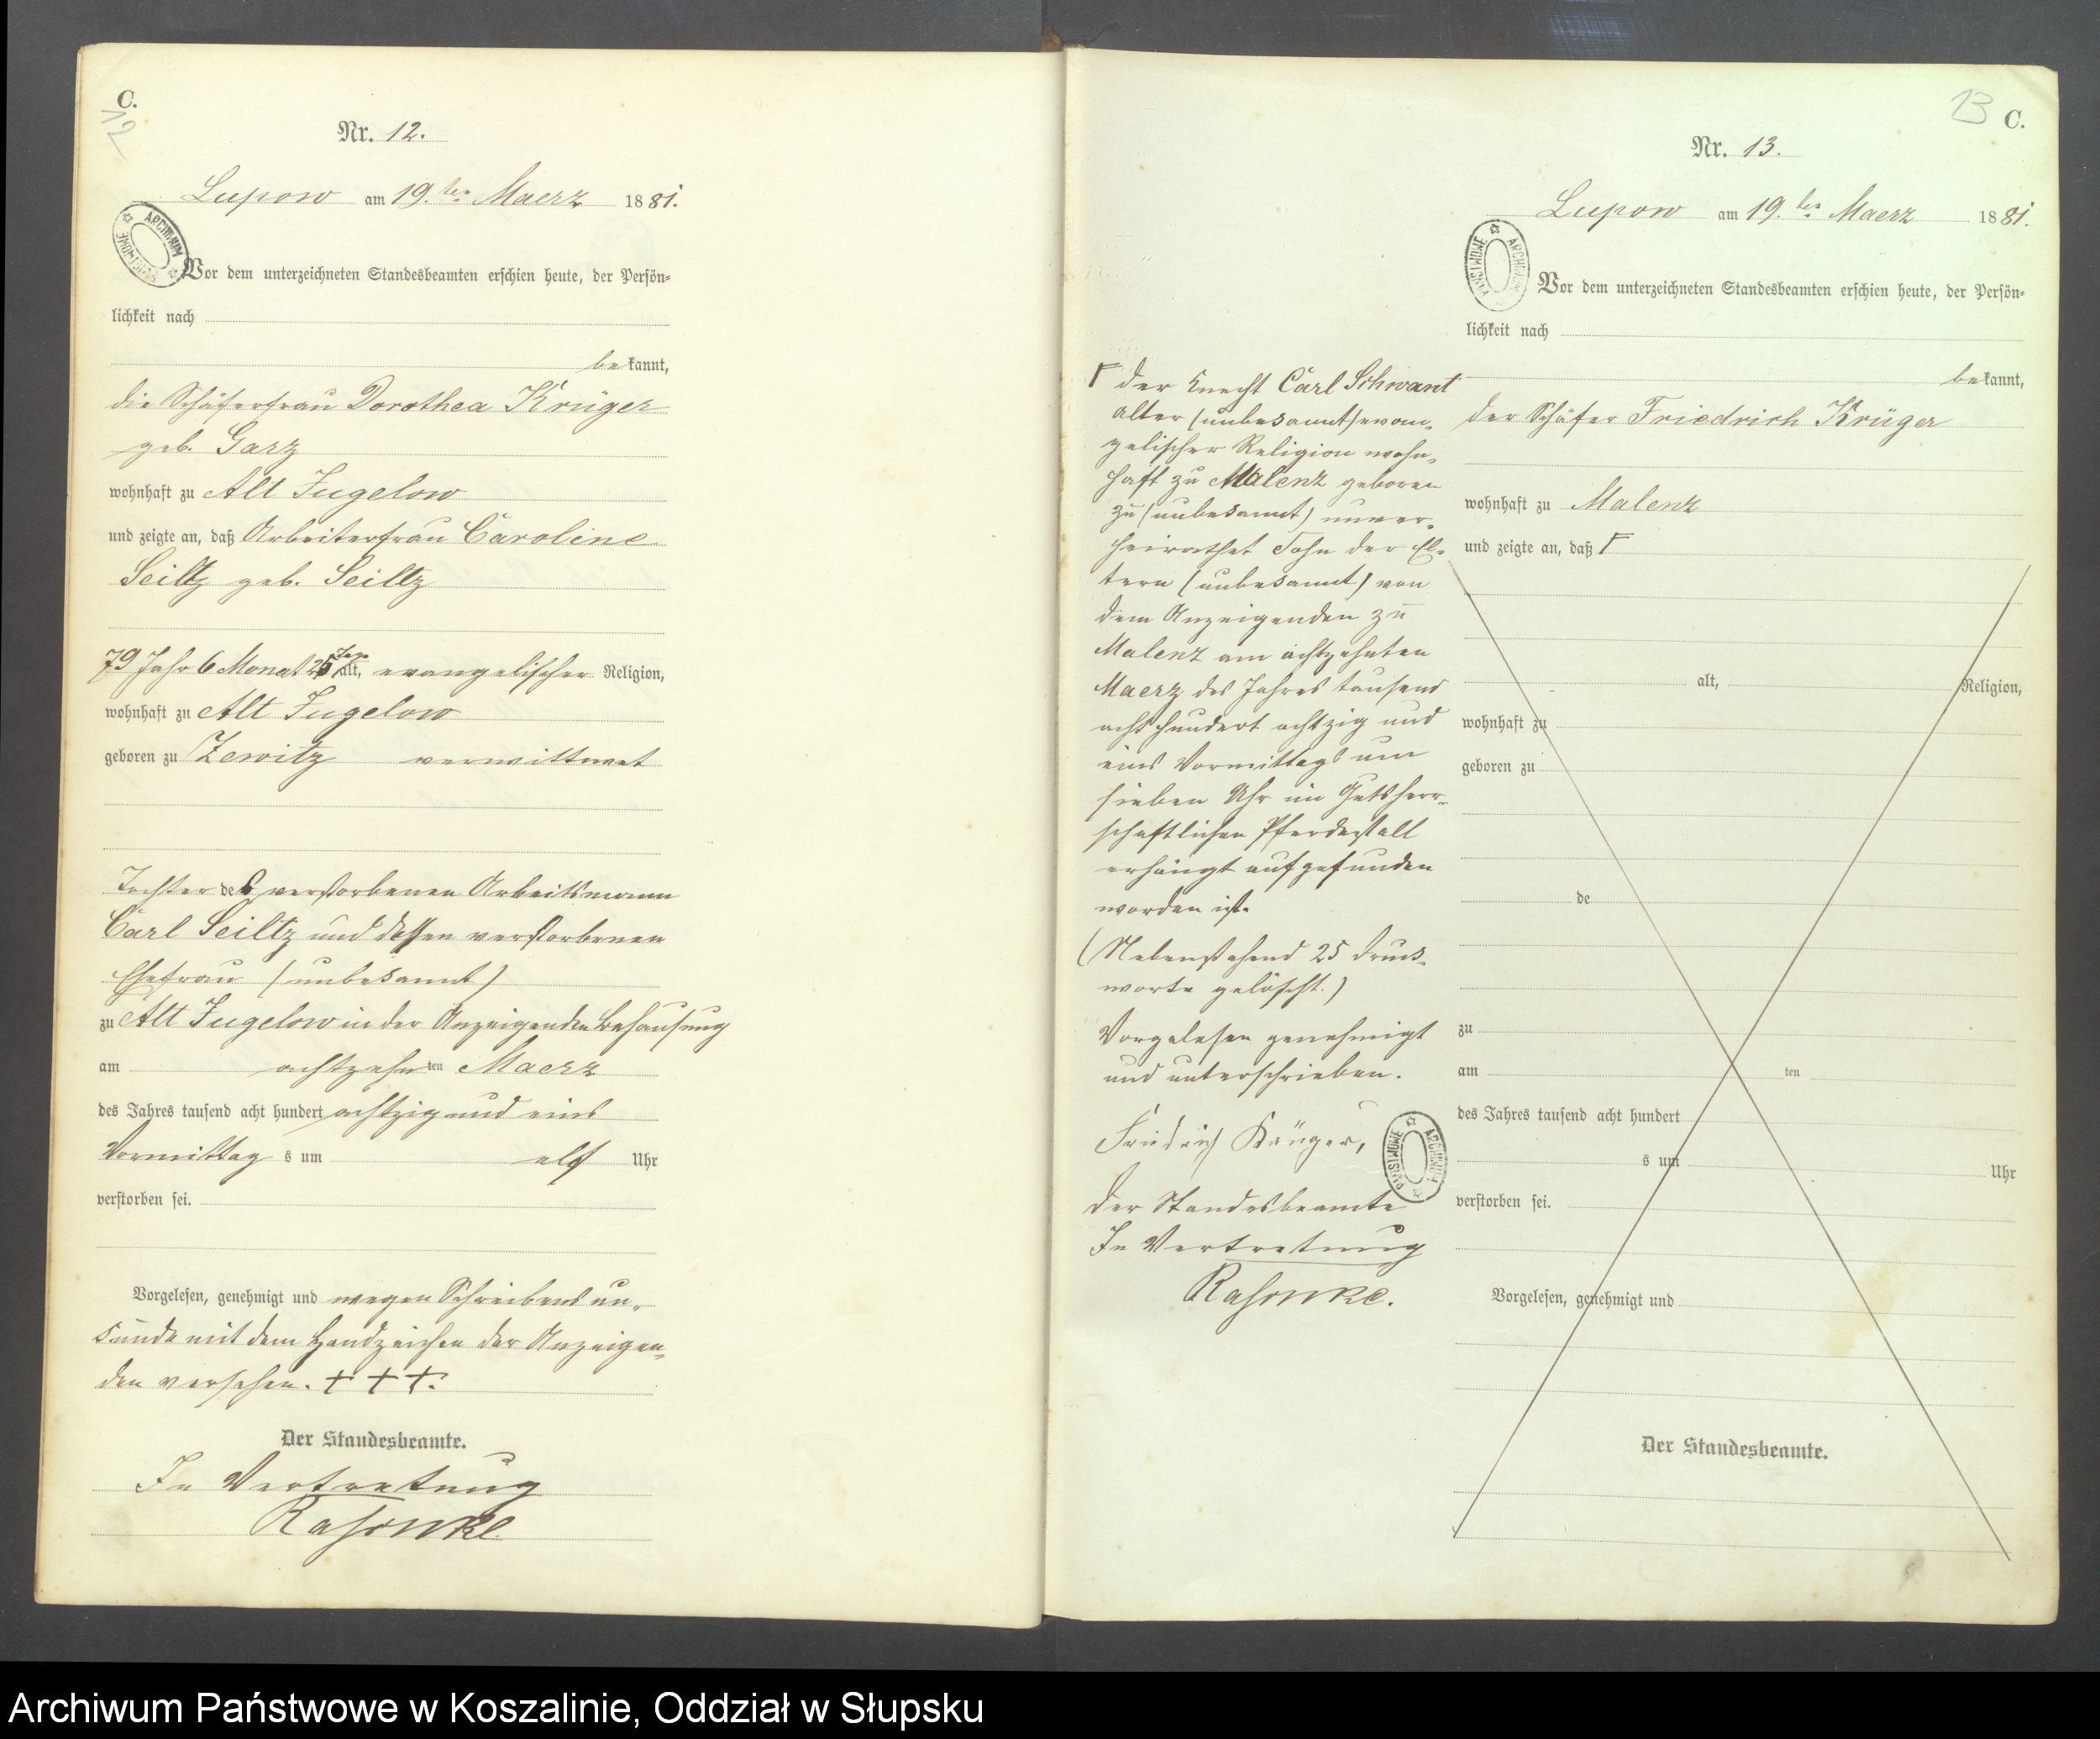 C.
12
Nr. 12.
Lupow am 19.ten Maerz 1881.
ARCHIWUM PAŃSTWOWE
Vor dem unterzeichneten Standesbeamten erschien heute, der Persön-
lichkeit nach
bekannt,
die Schäferfrau Dorothea Krüger
geb. Garz
wohnhaft zu Alt Jugelow
und zeigte an, daß Arbeiterfrau Caroline
Seiltz geb. Seiltz
79 Jahr 6 Monat 25 Tage alt, evangelischer Religion,
wohnhaft zu Alt Jugelow
geboren zu Zewitz verwittwet
Tochter des verstorbenen Arbeitsmann
Carl Seiltz und dessen verstorbenen
Ehefrau (unbekannt)
zu Alt Jugelow in der Anzeigenden Behausung
am achtzehnten Maerz
des Jahres tausend acht hundert achtzig und eins
Vormittags um elf Uhr
verstorben sei.
Vorgelesen, genehmigt und wegen Schreibens un-
kunde mit dem Handzeichen der Anzeigen-
den versehen. + + +.
Der Standesbeamte.
In Vertretung
13
C.
Nr. 13.
Lupow am 19.ten Maerz 1881.
ARCHIWUM PAŃSTWOWE
Vor dem unterzeichneten Standesbeamten erschien heute, der Persön-
lichkeit nach
bekannt,
der Schäfer Friedrich Krüger
wohnhaft zu Malenz
und zeigte an, daß Γ
alt, Religion,
wohnhaft zu
geboren zu
de
zu
am ten
des Jahres tausend acht hundert
s um Uhr
verstorben sei.
Vorgelesen, genehmigt und
Der Standesbeamte.
Γ der Knecht Carl Schwant
alter (unbekannt) evan-
gelischer Religion wohn-
haft zu Malenz geboren
zu (unbekannt) unver-
heirathet Sohn der El-
tern (unbekannt) von
dem Anzeigenden zu
Malenz am achtzehnten
Maerz des Jahres tausend
acht hundert achtzig und
eins Vormittags um
sieben Uhr im Gutsherr-
schaftlichen Pferdestall
erhängt aufgefunden
worden ist.
(Nebenstehend 25 Druck-
worte gelöscht.)
Vorgelesen genehmigt
und unterschrieben.
Friedrich Krüger,
ARCHIWUM PAŃSTWOWE
Der Standesbeamte
In Vertretung
Archiwum Państwowe w Koszalinie, Oddział w Słupsku